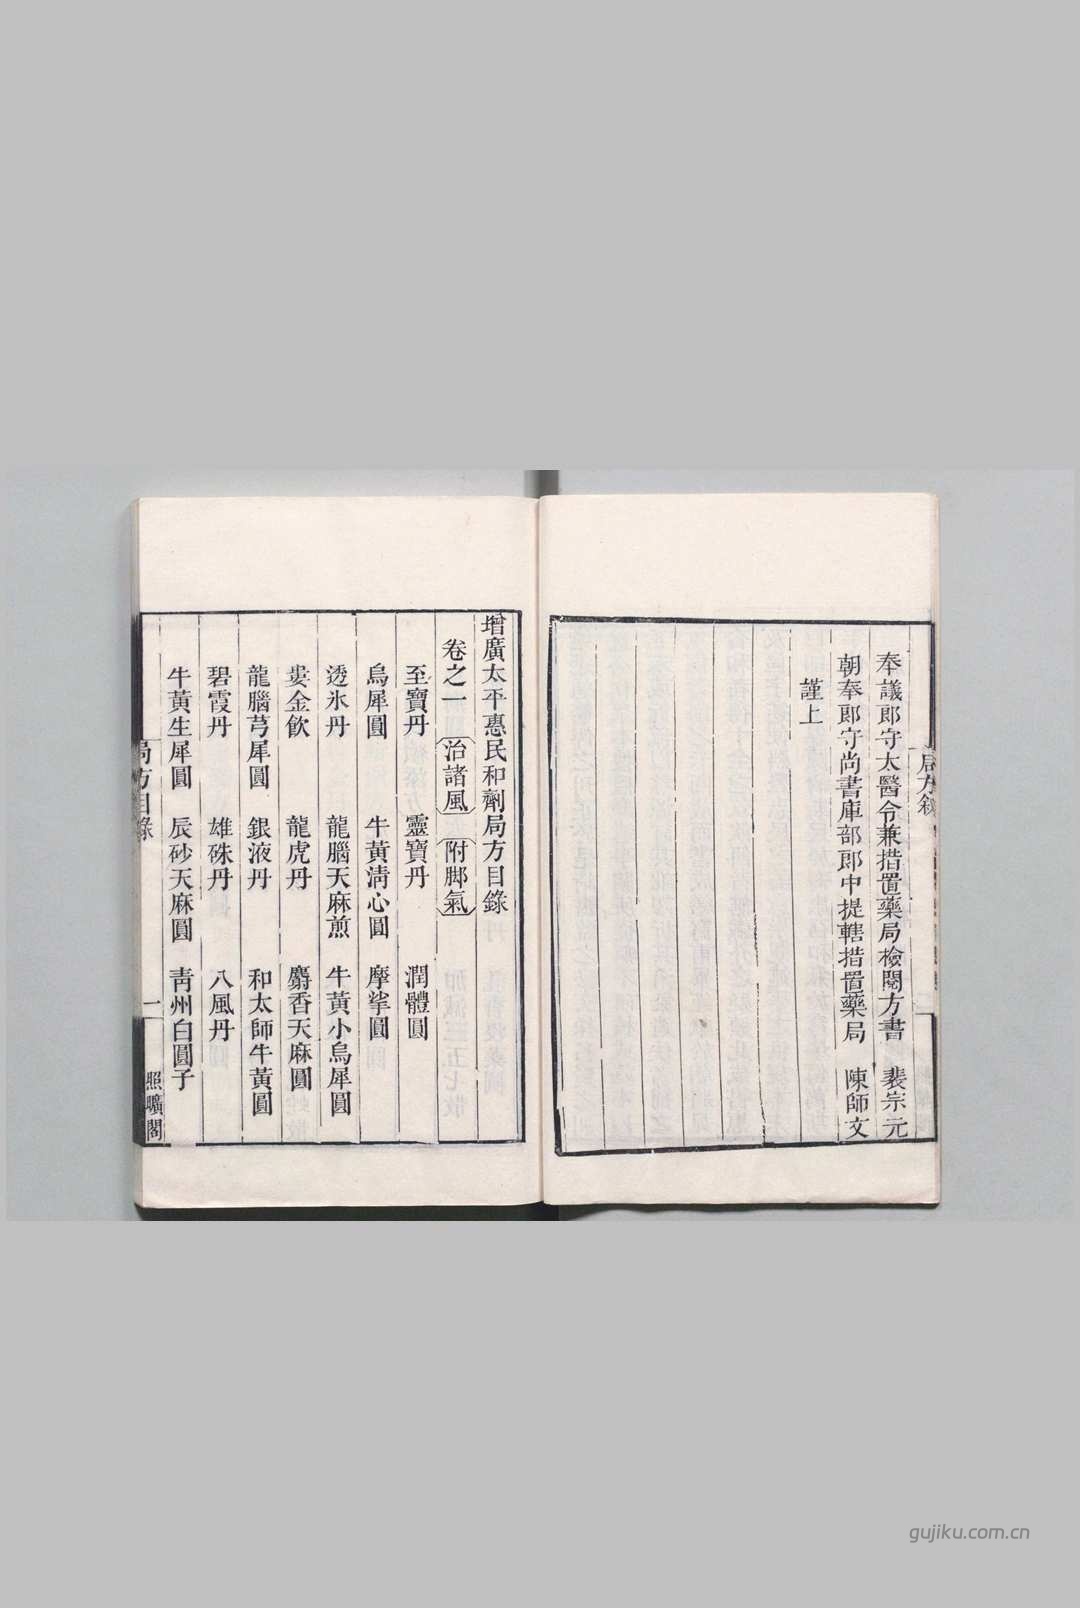 奉議郎守太醫令兼措置藥局檢閱方書　裴宗元
朝奉郎守尚書庫部郎中提轄措置藥局　陳師文
謹上
局方敘
增廣太平惠民和劑局方目錄
卷之一　治諸風　附脚氣
至寶丹　靈寶丹　潤體圓
烏犀圓　牛黃淸心圓　摩挲圓
透氷丹　龍腦天麻煎　牛黃小烏犀圓
婁金飮　龍虎丹　麝香天麻圓
龍腦芎犀圓　銀液丹　和太師牛黃圓
碧霞丹　雄硃丹　八風丹
牛黃生犀圓　辰砂天麻圓　靑州白圓子
局方目錄　一　照曠閣
gujiku.com.cn